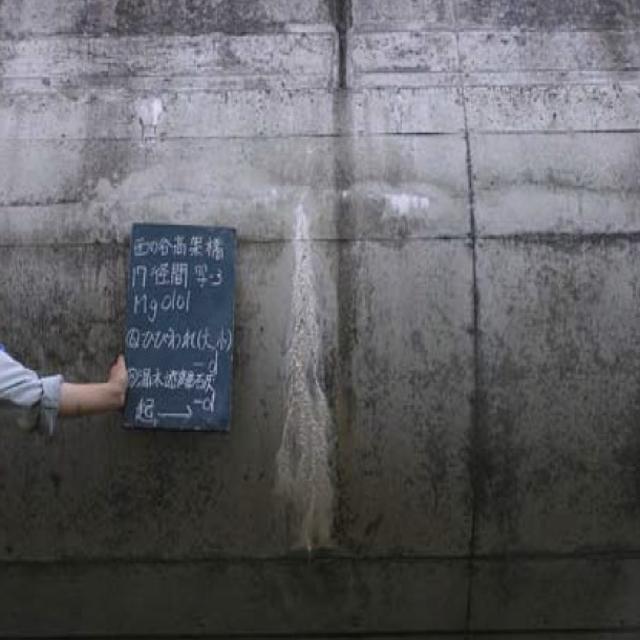 西の谷高架橋
17径間 写-3
Mg0101
①ひびわれ(大,小)
-d
②漏水遊離石灰
-d
起→